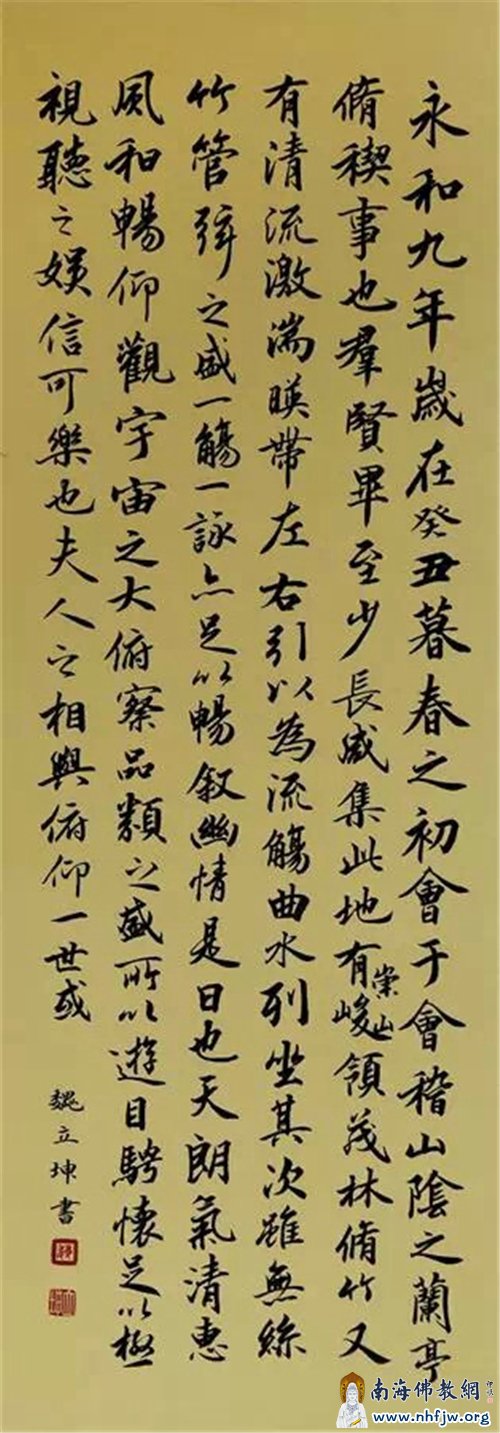 永和九年歲在癸丑暮春之初會于會稽山陰之蘭亭
脩稧事也羣賢畢至少長咸集此地有崇山峻領茂林脩竹又
有清流激湍暎帶左右引以為流觴曲水列坐其次雖無絲
竹管弦之盛一觴一詠亦足以暢叙幽情是日也天朗氣清惠
風和暢仰觀宇宙之大俯察品類之盛所以遊目騁懷足以極
視聽之娛信可樂也夫人之相與俯仰一世或
魏立坤書
南海佛教網
www.nhfjw.org